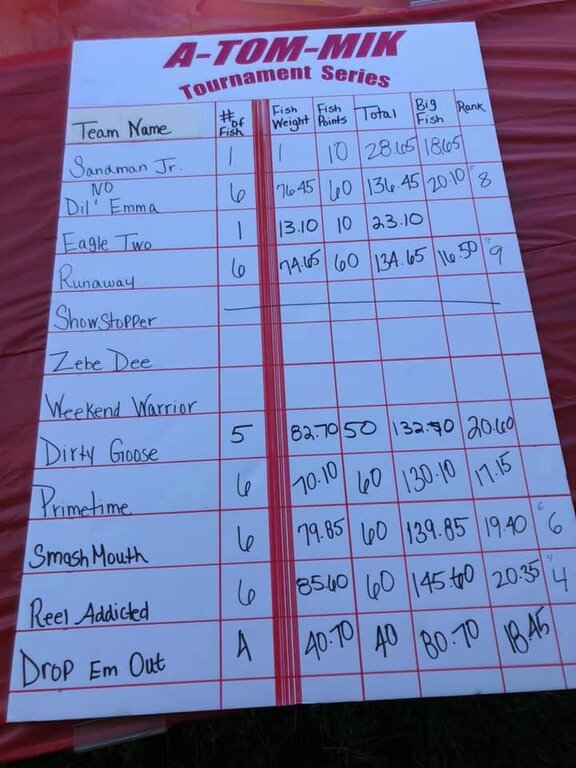 A-TOM-MIK
Tournament Series
Team Name # of Fish Fish Weight Fish Points Total Big Fish Rank
Sandman Jr. 1 1 10 28.65 18.65
NO Dil' Emma 6 76.45 60 136.45 20.10 8
Eagle Two 1 13.10 10 23.10
Runaway 6 74.65 60 134.65 16.50 9
ShowStopper
Zebe Dee
Weekend Warrior
Dirty Goose 5 82.70 50 132.70 20.60
Primetime 6 70.10 60 130.10 17.15
SmashMouth 6 79.85 60 139.85 19.40 6
Reel Addicted 6 85.60 60 145.60 20.35 4
Drop Em Out 4 40.70 40 80.70 18.45